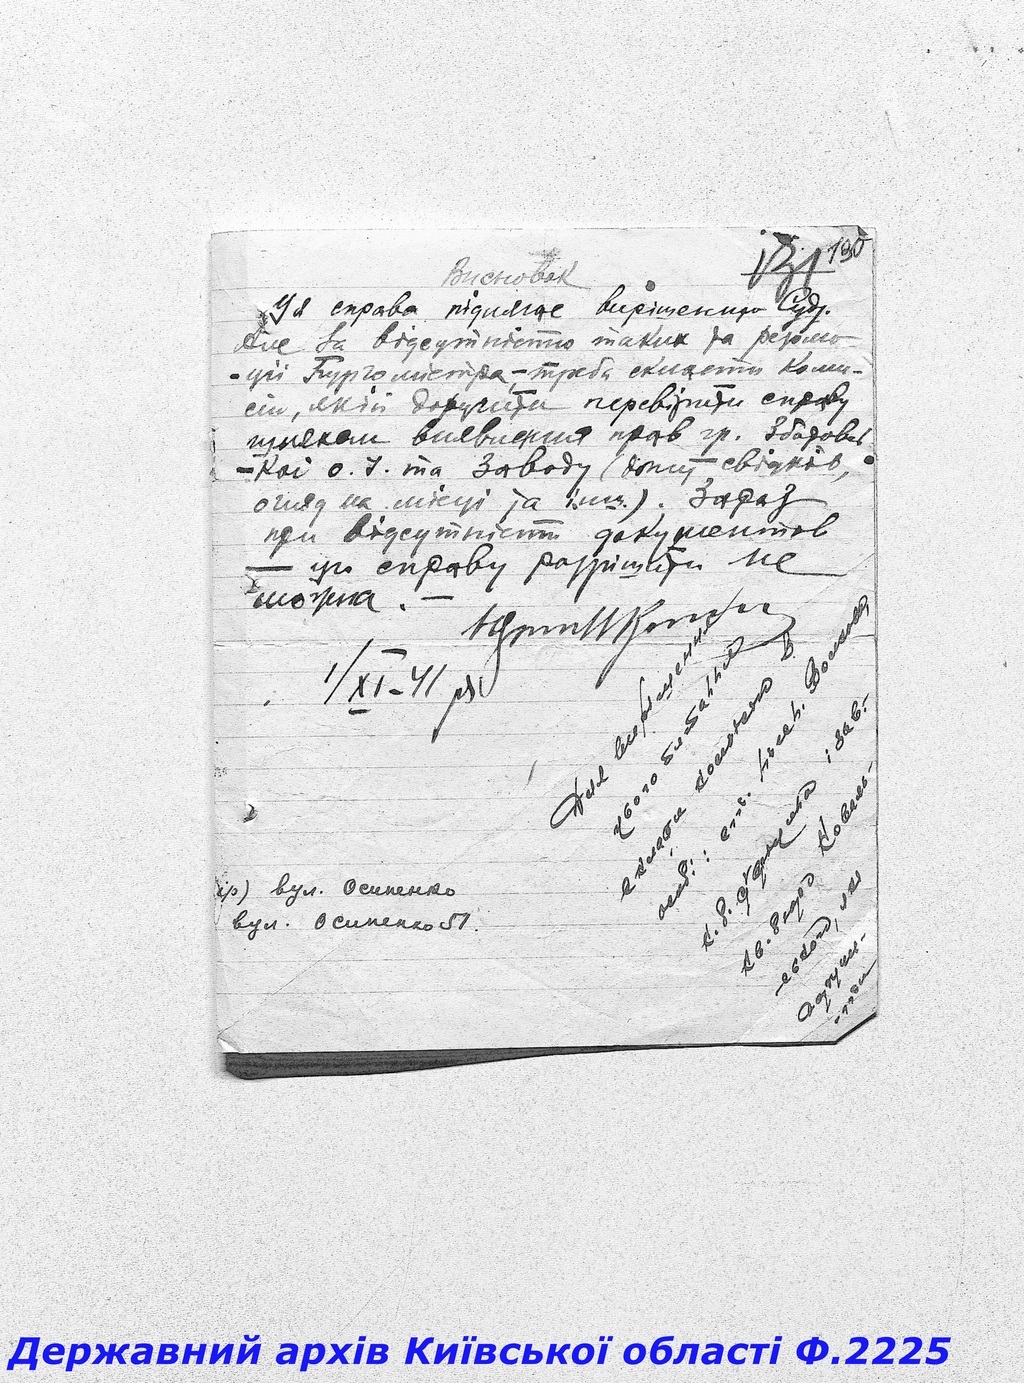 130
Висновок
Ця справа підлягає вирішенню Суду.
Але за відсутністю таких та резолю-
-ції Бургомістра, - треба скласти Комі-
сію, якій доручити перевірити справу
шляхом виявлення прав гр.
-кої о. І. та Заводу (допит свідків,
огляд на місці та інш.). Зараз
при відсутності документов
— цю справу разрішити не
можна. —
1/XI-41 р.
Для вирішення
цього питання
скласти комісію з
осіб:
і зав.
кв. бюро Коваль-
-ського, яка
вул. Осипенко
вул. Осипенко 51.
Державний архів Київської області Ф.2225